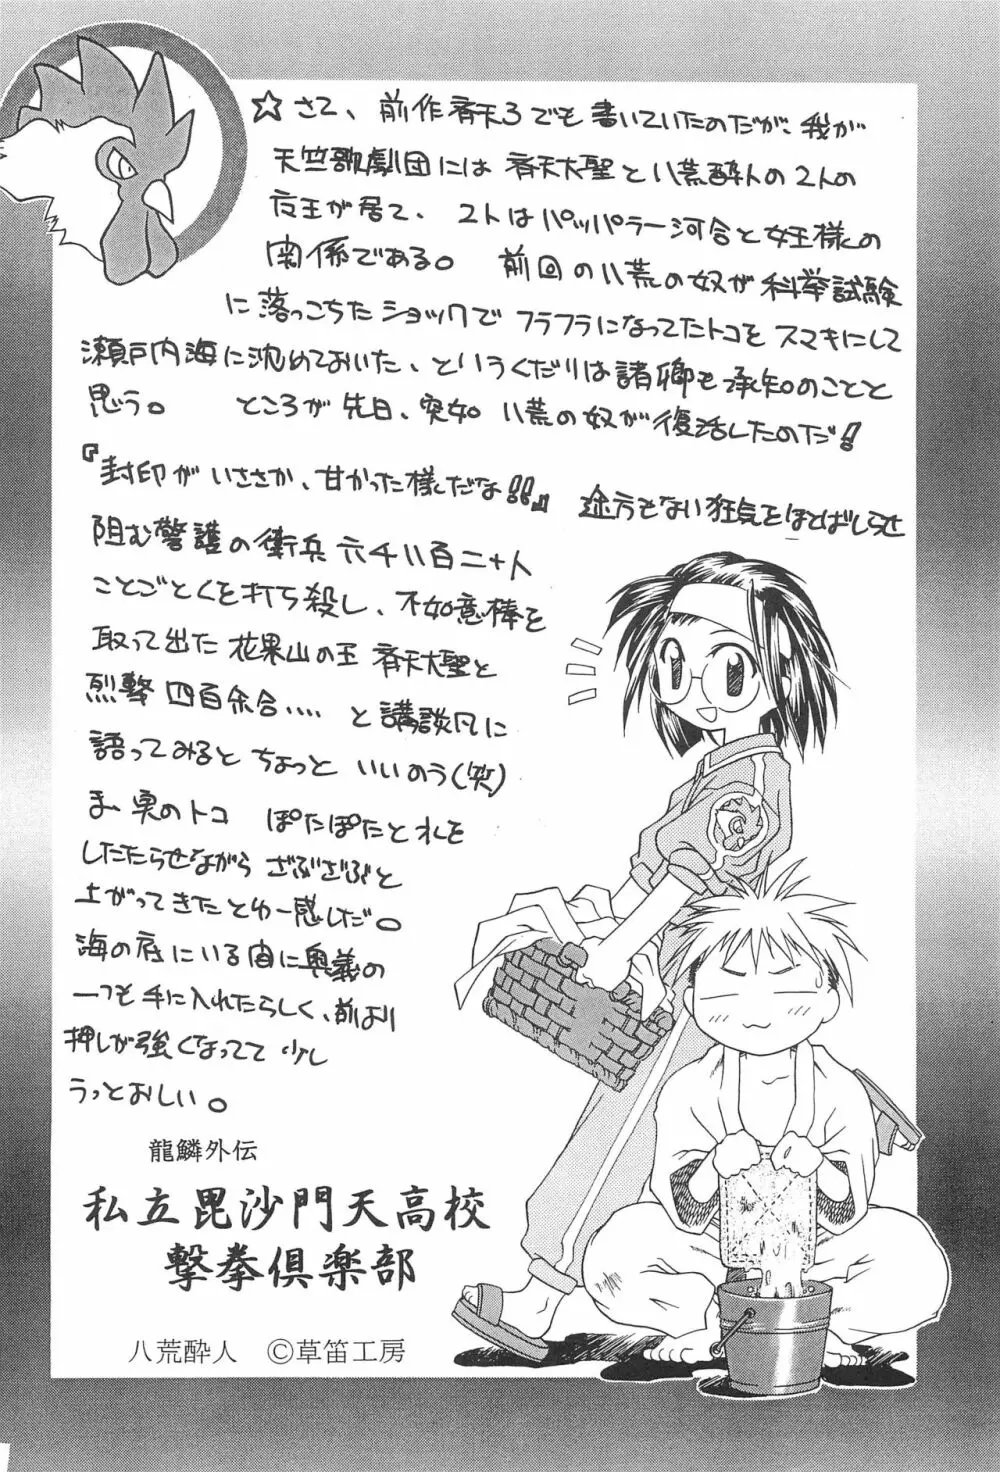 ☆さて、前作斉天3でも書いていたのだが、我が
天竺歌劇団には 斉天大聖と八荒酔人の2人の
女王が居て、2人はパッパラー河合と女王様の
関係である。 前回の八荒の奴が科挙試験
に落っこちたショックでフラフラになってたトコをスマキにして
瀬戸内海に沈めておいた、というくだりは諸卿も承知のことと
思う。 ところが先日、突如 八荒の奴が復活したのだ!
『封印がいささか、甘かった様だな!!』 途方もない狂気をほとばしらせ
阻む警護の衛兵六千八百二十人
ことごとくを打ち殺し、不如意棒を
取って出た花果山の王 斉天大聖と
烈撃 四百余合‥‥ と講談風に
語ってみるとちょっといいのう(笑)
ま、実のトコ ぽたぽたと水を
したたらせながら ざぶざぶと
上がってきたとゆー感じだ。
海の底にいる間に奥義の
一つも手に入れたらしく、前より
押しが強くなってて 少し
うっとおしい。
龍鱗外伝
私立毘沙門天高校
撃拳倶楽部
八荒酔人 ©草笛工房